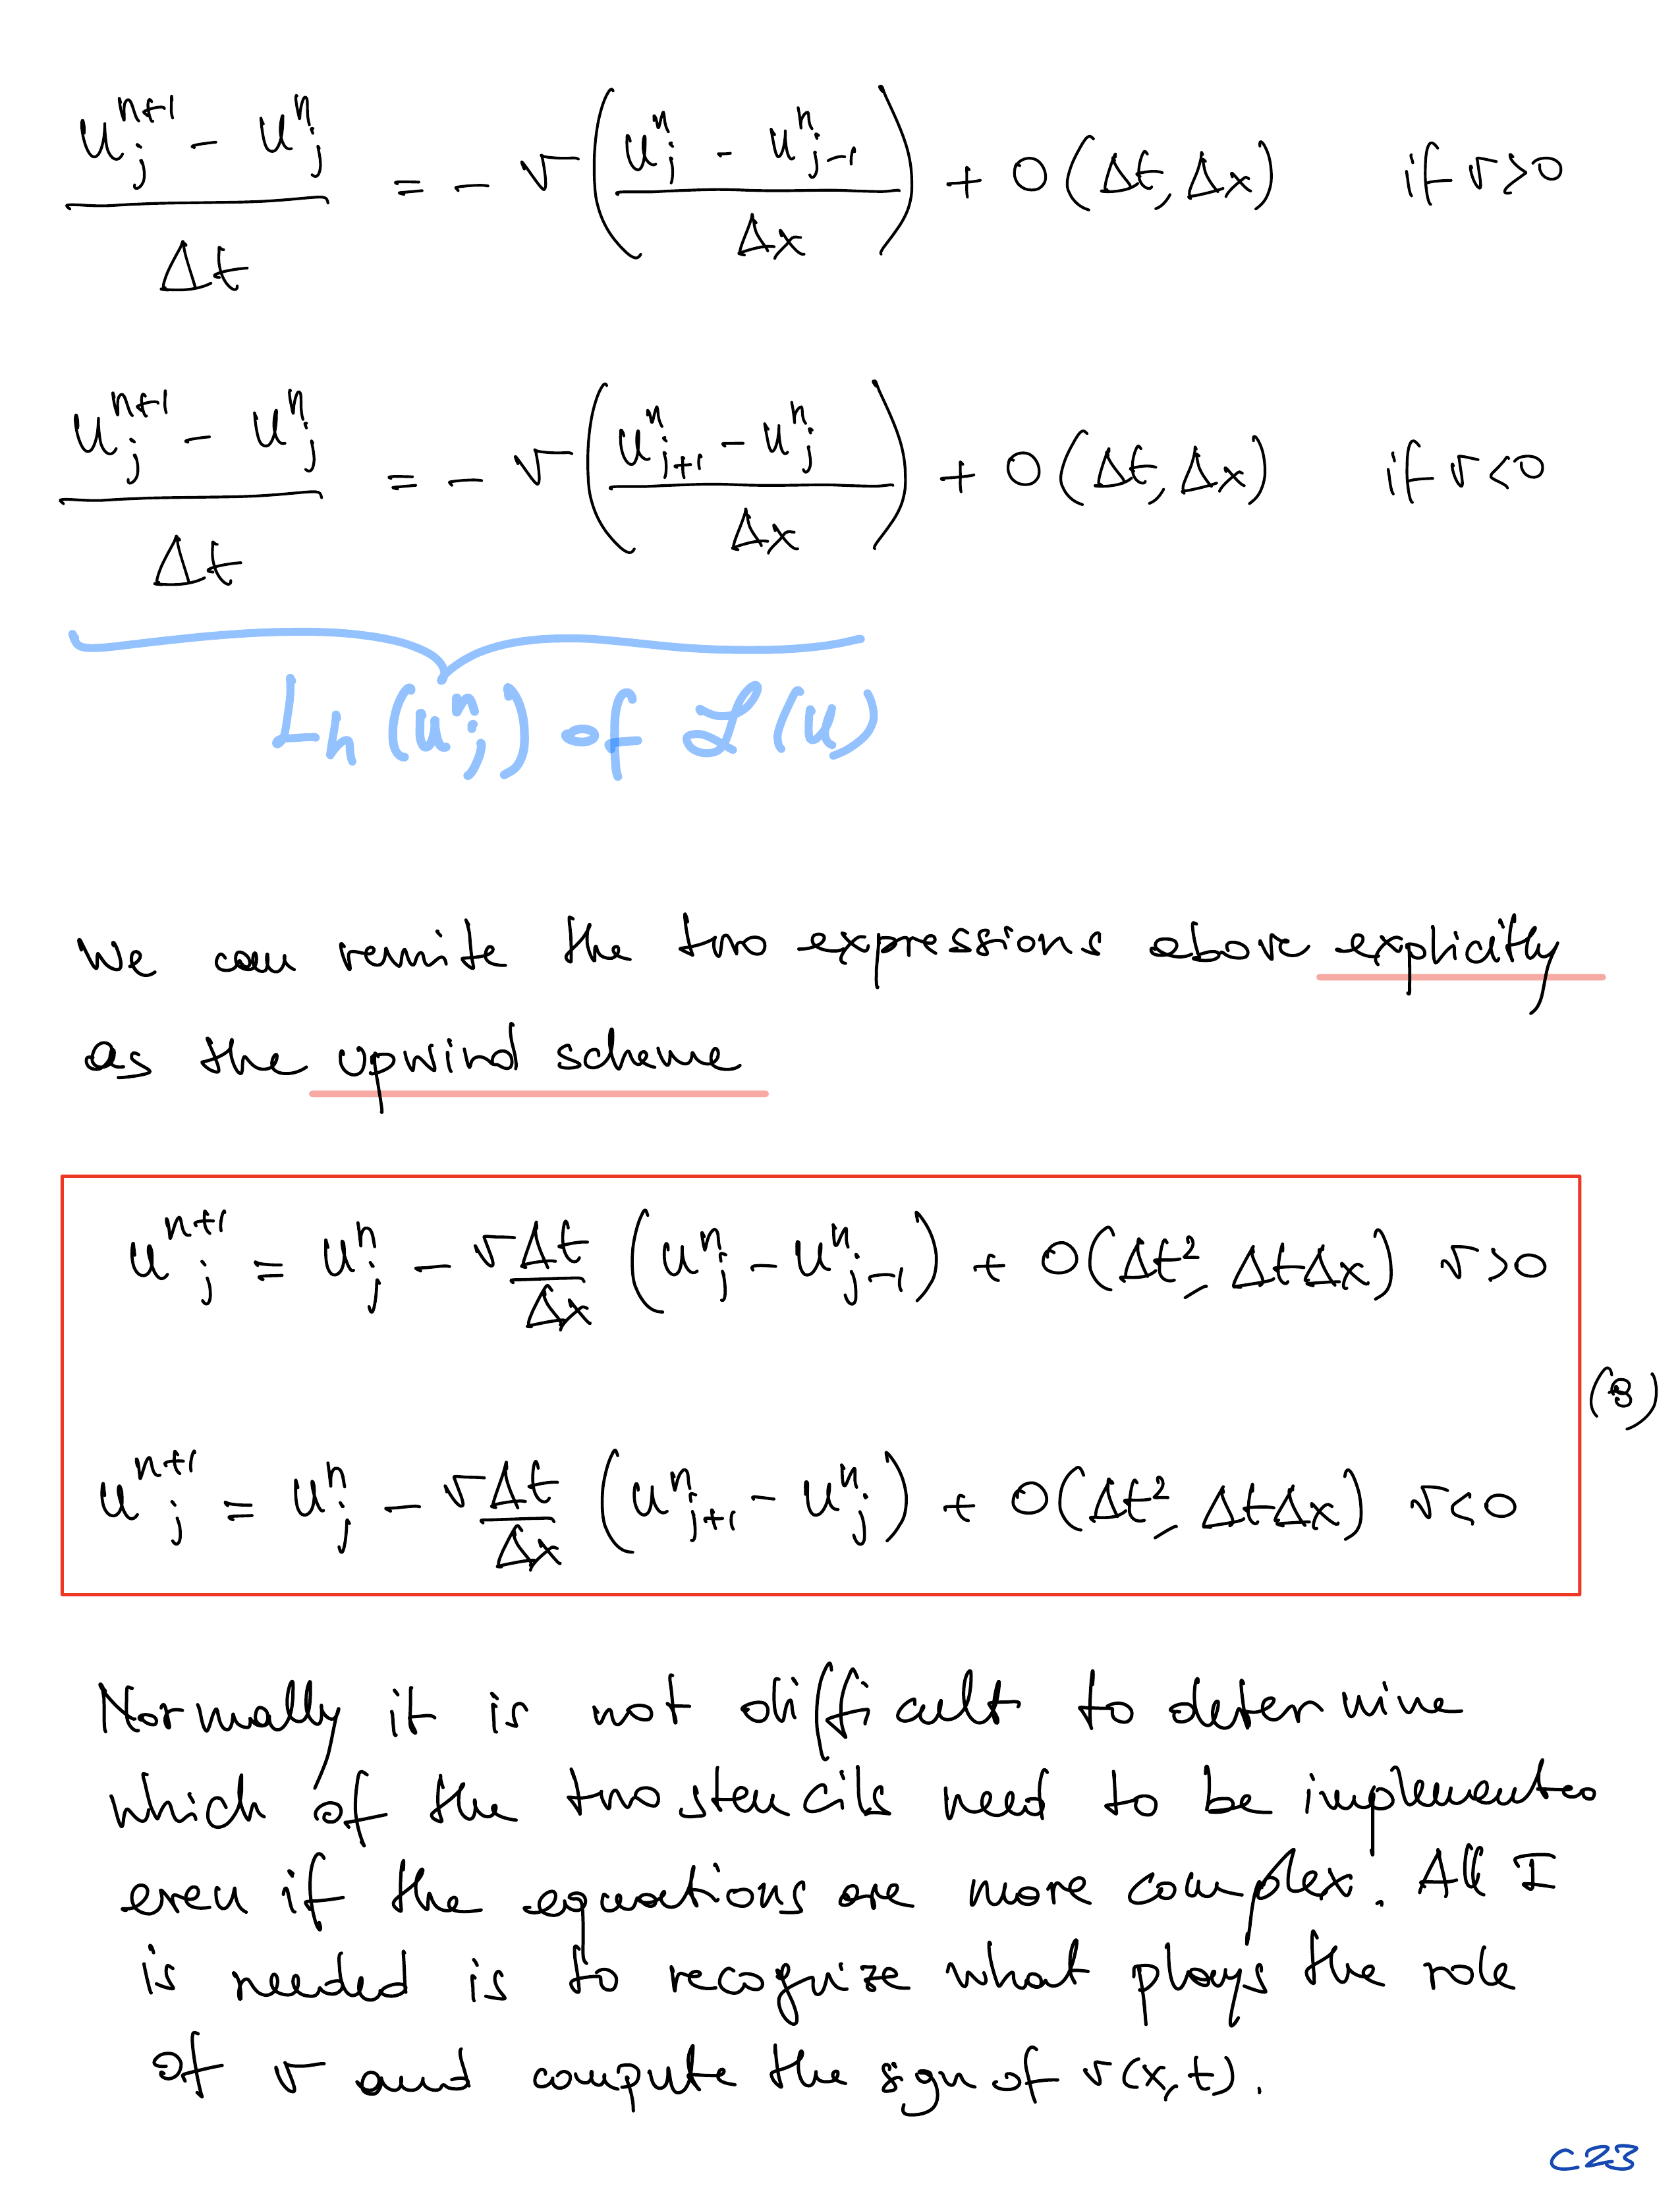 \frac{u_j^{n+1} - u_j^n}{\Delta t} = - v \left( \frac{u_j^n - u_{j-1}^n}{\Delta x} \right) + O(\Delta t, \Delta x) if v>0
\frac{u_j^{n+1} - u_j^n}{\Delta t} = - v \left( \frac{u_{j+1}^n - u_j^n}{\Delta x} \right) + O(\Delta t, \Delta x) if v<0
L_h(u_j^n) of \mathcal{L}(u)
We can rewrite the two expressions above explicitly
as the upwind scheme
u_j^{n+1} = u_j^n - \frac{v \Delta t}{\Delta x} (u_j^n - u_{j-1}^n) + O(\Delta t^2, \Delta t \Delta x) v>0
(8)
u_j^{n+1} = u_j^n - \frac{v \Delta t}{\Delta x} (u_{j+1}^n - u_j^n) + O(\Delta t^2, \Delta t \Delta x) v<0
Normally it is not difficult to determine
which of the two stencils need to be implemented
even if the equations are more complex. All I
is needed is to recognize what plays the role
of v and compute the sign of v(x,t).
C23